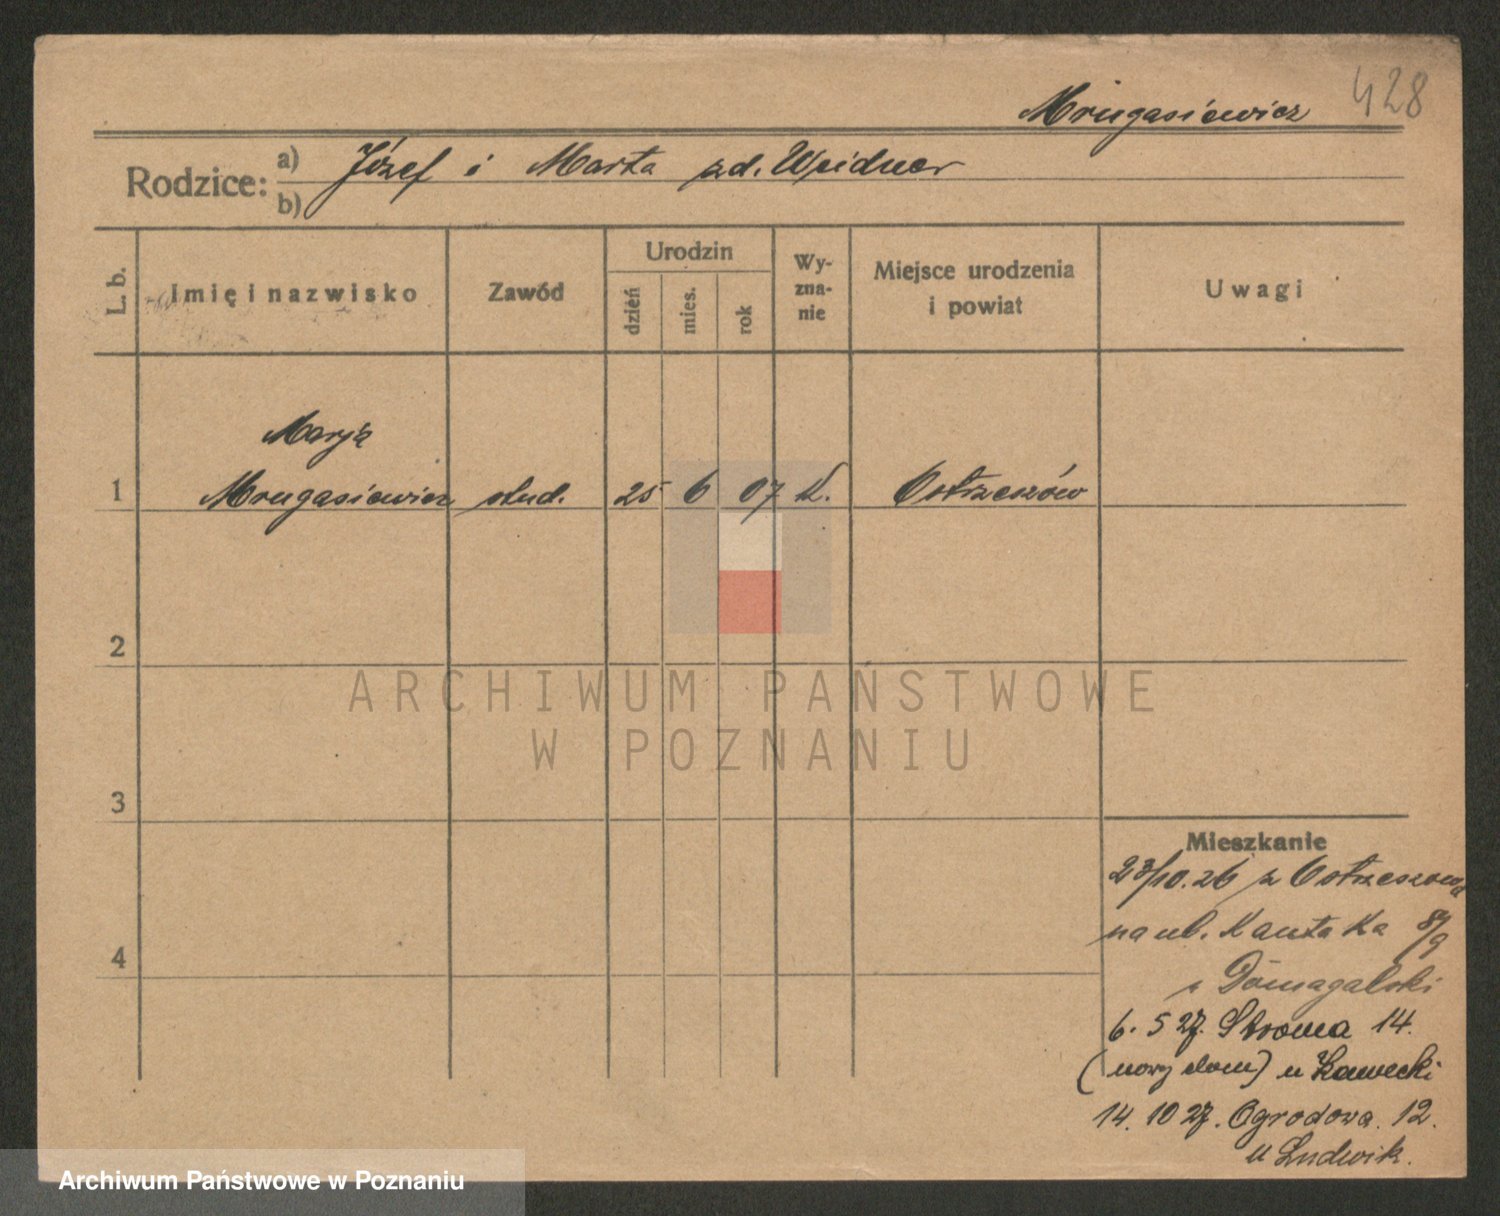 Mrugasiewicz 428
Rodzice: a) Józef i Marta zd. Weidner
b)
L. b.
Imię i nazwisko
Zawód
Urodzin
dzień
mies.
rok
Wy-
zna-
nie
Miejsce urodzenia
i powiat
Uwagi
Marja
1 Mrugasiewicz stud. 25 6 07 K. Ostrzeszów
2
ARCHIWUM PAŃSTWOWE
W POZNANIU
3
Mieszkanie
23/10.26 z Ostrzeszowa
na ul. Kantaka 8/9
Domagalski
4
6. 5 27. Stroma 14.
(nowy dom) u Kawecki
14. 10 27. Ogrodowa. 12.
u Ludwik.
Archiwum Państwowe w Poznaniu